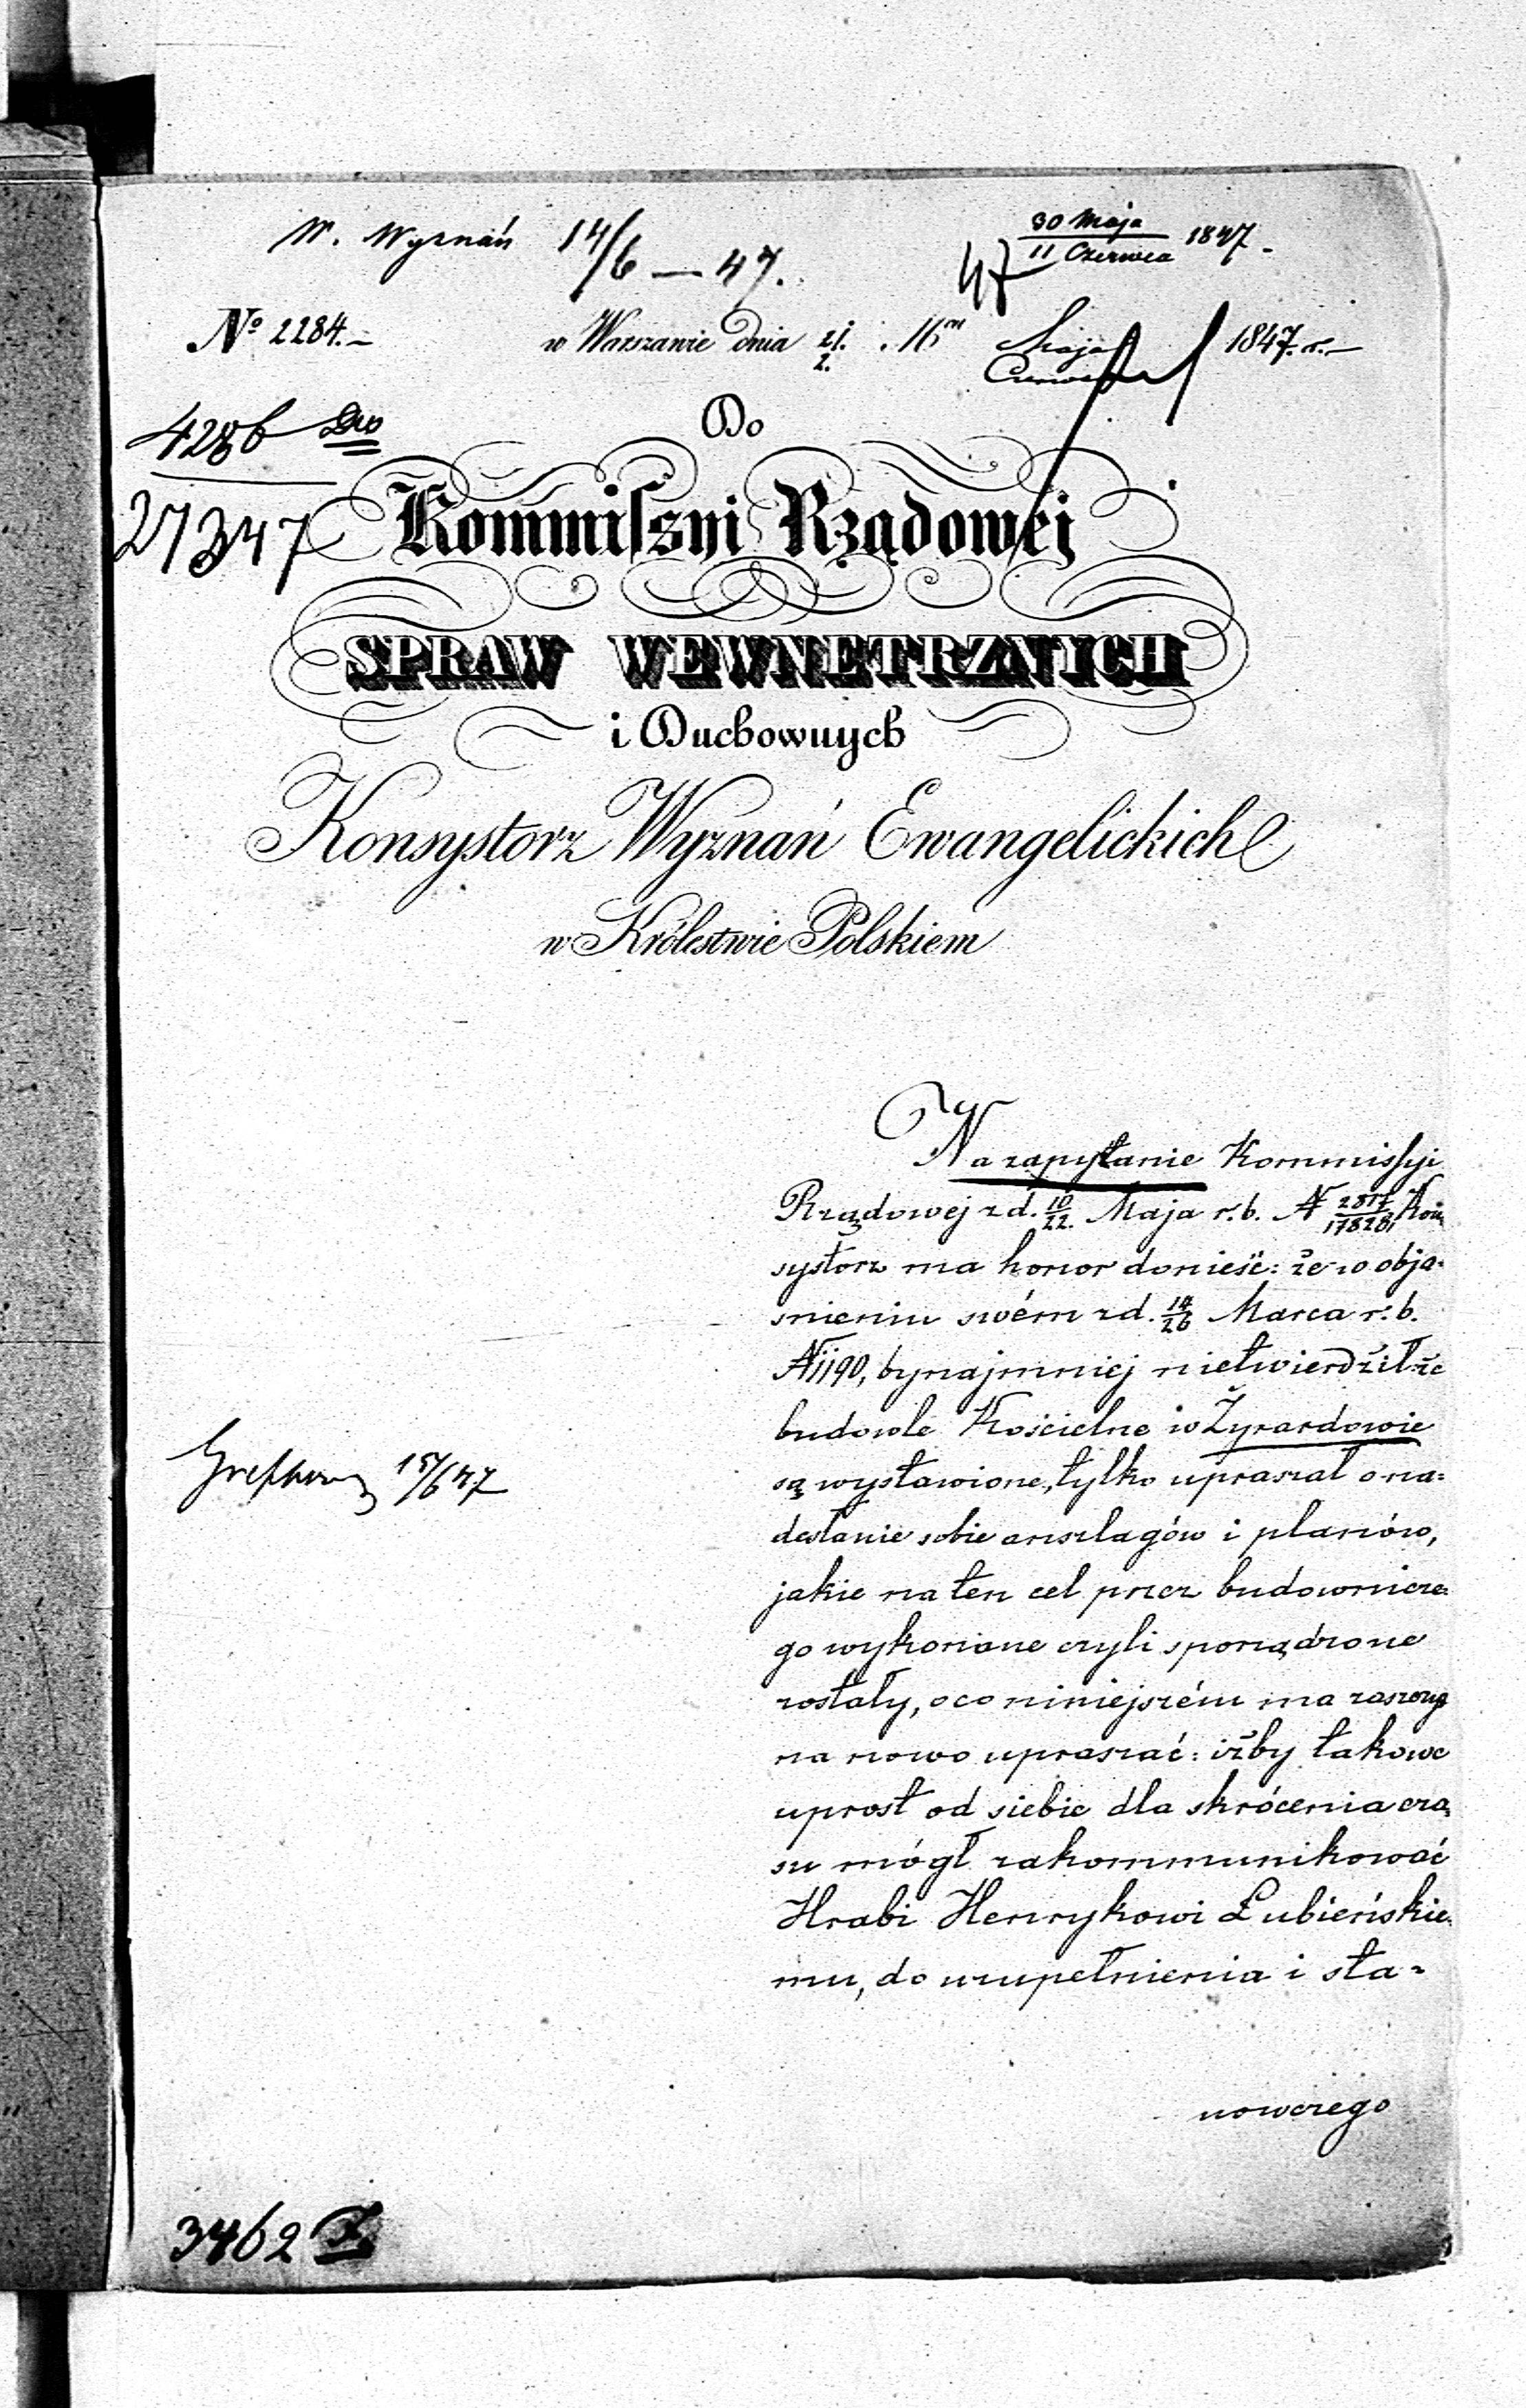 W. Wyznań 14/6 — 47.
30 Maja
11 Czerwca 1847 -
47
No 2284. -
w Warszawie dnia 21. 2. Maja Czerwca 1847. r. -
4286
27347
Do
Kommissyi Rządowej
SPRAW WEWNĘTRZNYCH
i Duchownych
Konsystorz Wyznań Ewangelickich
w Królestwie Polskiem
Na zapytanie Kommissyi
Rządowej z d. 10/22. Maja r. b. N 2817/17828, Kon
systorz ma honor donieść: że w obja-
śnieniu swém z d. 14/26 Marca r. b.
N 1190, bynajmniej nie twierdził że
budowle Kościelne w Żyrardowie
są wystawione, tylko upraszał o na-
desłanie sobie anszlagów i planów,
jakie na ten cel przez budownicze-
go wykonane czyli sporządzone
zostały, o co niniejszém ma zaszczyt
na nowo upraszać: iżby takowe
uprost od siebie dla skrócenia cza-
su mógł zakommunikować
Hrabi Henrykowi Łubieńskie-
mu, do uzupełnienia i sta-
nowczego
15/6 47
3462